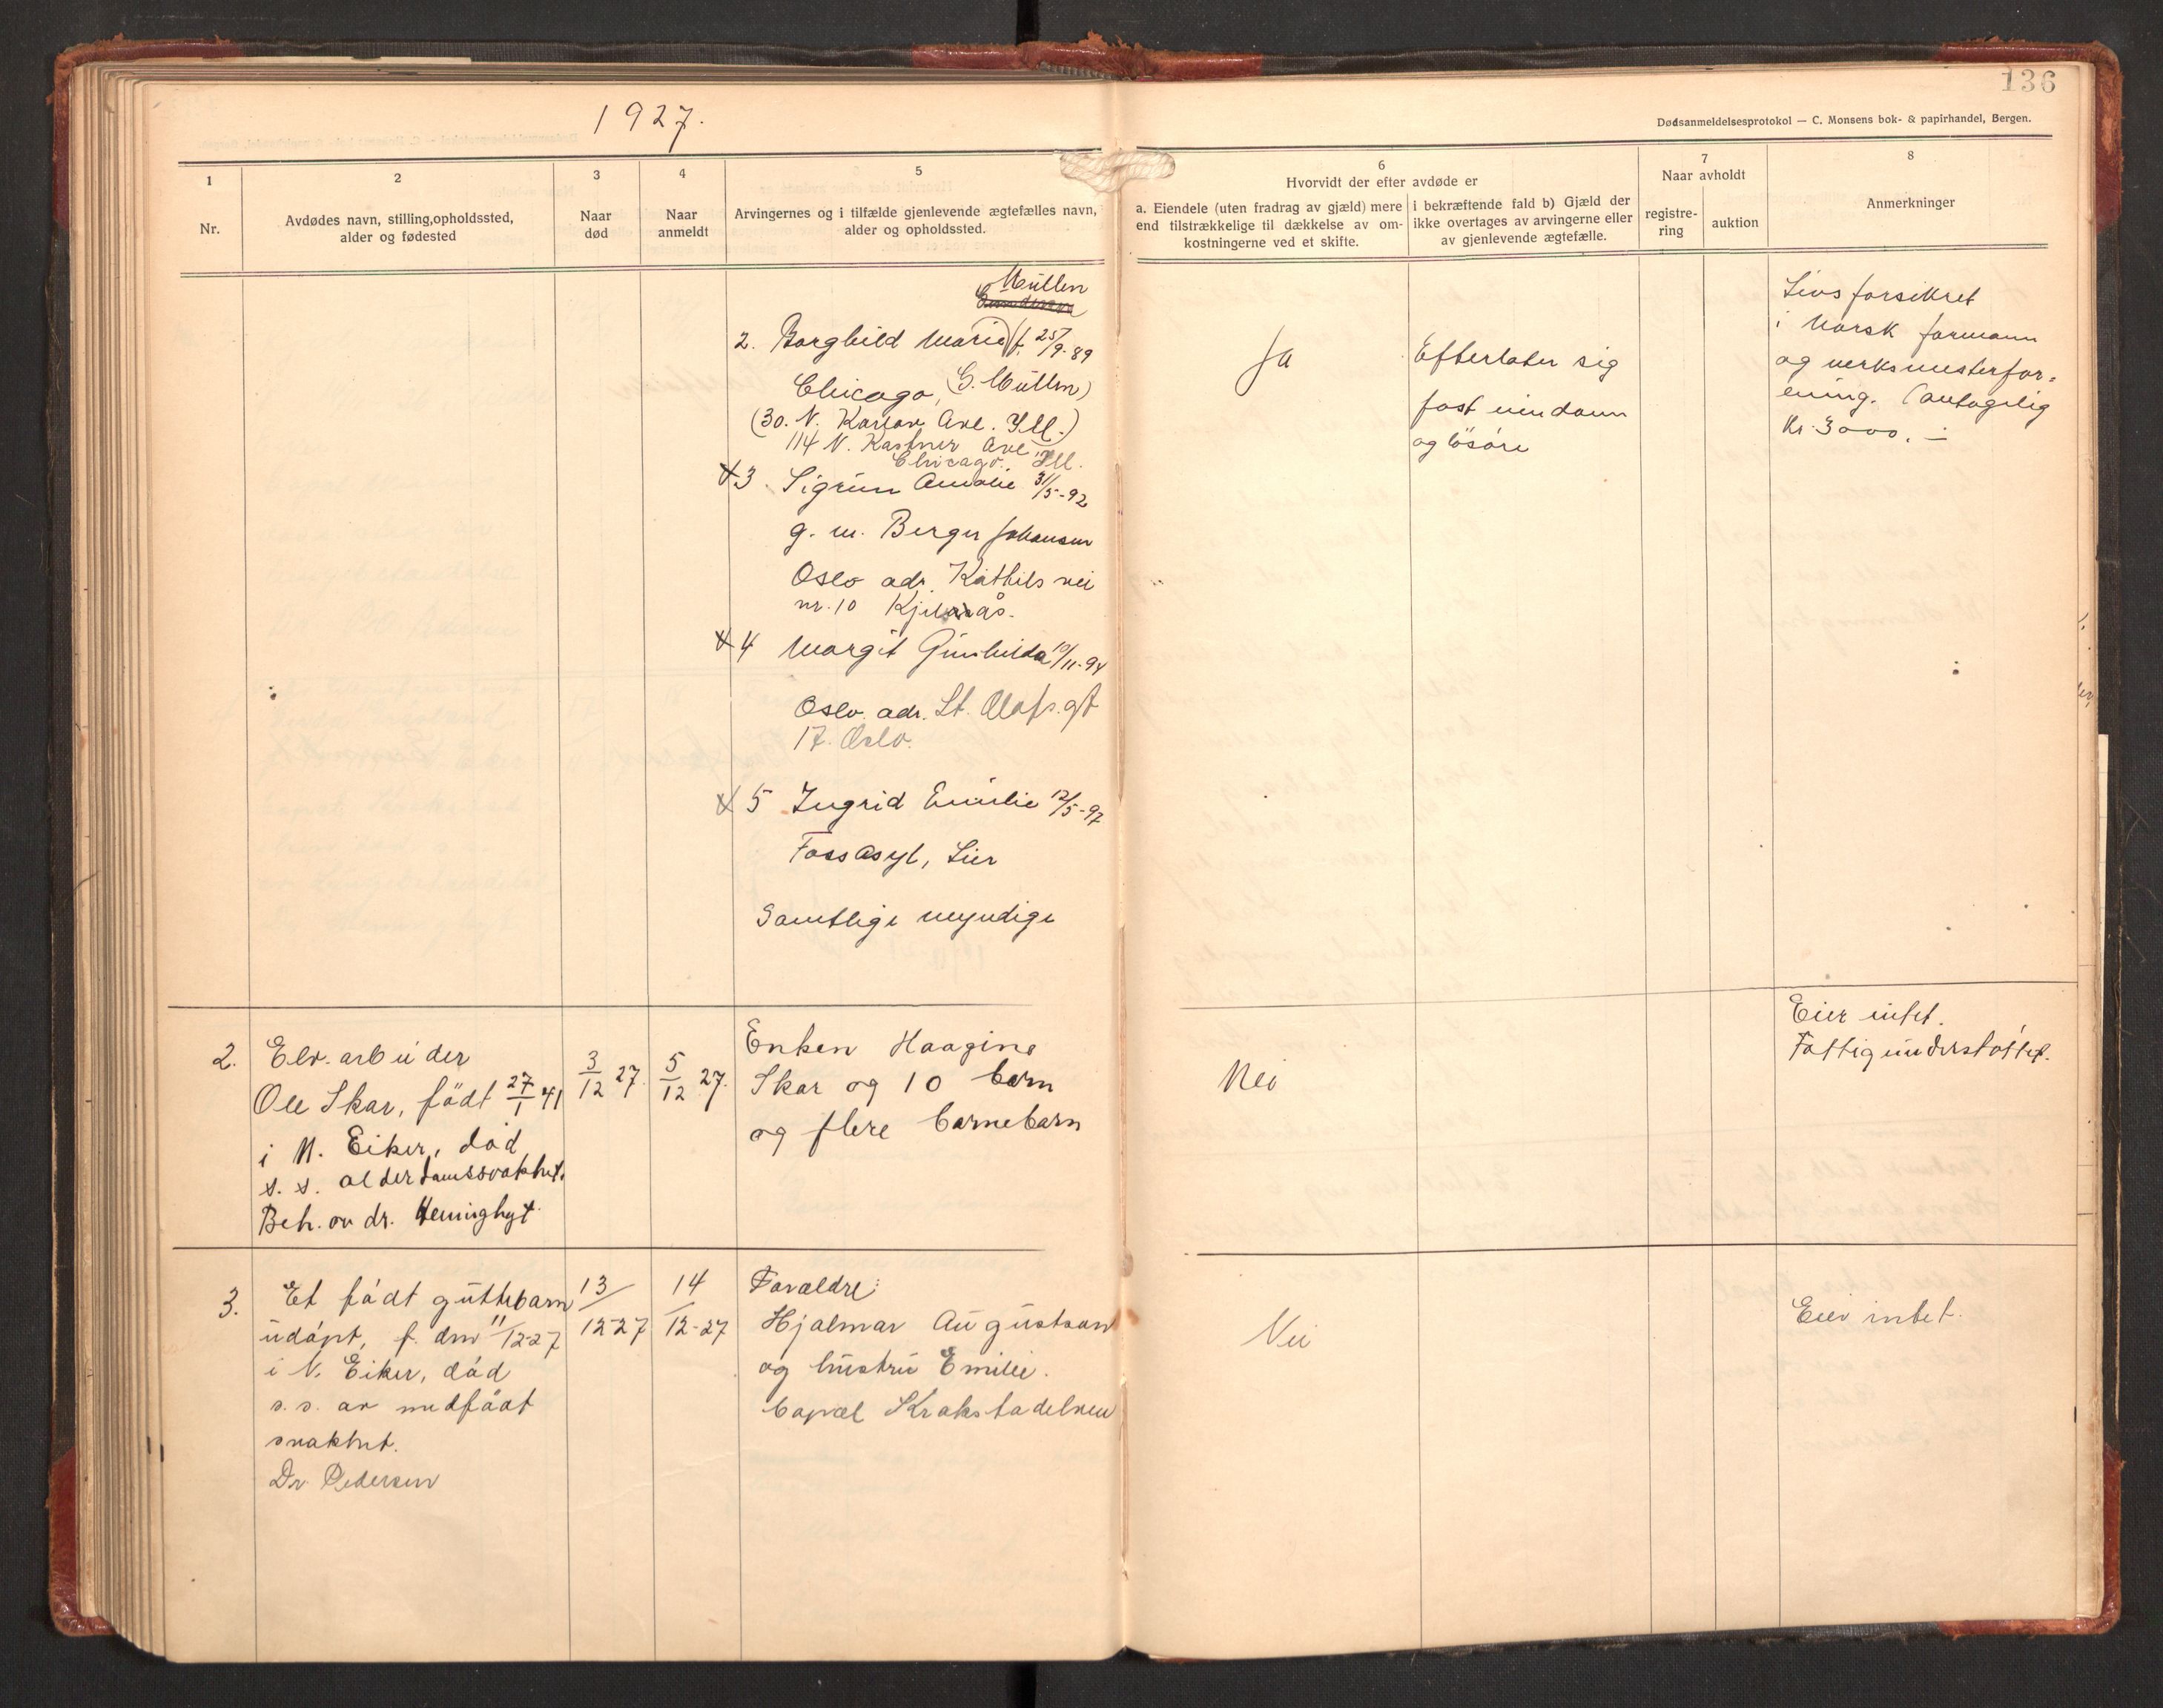 1927.
136
Dødsanmeldelsesprotokol — C. Monsens bok- & papirhandel, Bergen.
1
Nr.
2
Avdødes navn, stilling, opholdssted,
alder og fødested
3
Naar
død
4
Naar
anmeldt
5
Arvingernes og i tilfælde gjenlevende ægtefælles navn,
alder og opholdssted.
6
Hvorvidt der efter avdøde er
a. Eiendele (uten fradrag av gjæld) mere
end tilstrækkelige til dækkelse av om-
kostningerne ved et skifte.
i bekræftende fald b) Gjæld der
ikke overtages av arvingerne eller
av gjenlevende ægtefælle.
7
Naar avholdt
registre-
ring
auktion
8
Anmerkninger
Müllen
2. Borghild Marie f. 25/9-89
Chicago, (G. Müllen)
(30. N. Ave. Ill.)
114 N. Ave
Chicago. Ill.
3. Sigrun Amalie 31/5-92
g. m. Berger Johansen
Oslo adr. Kåthils vei
nr. 10 Kjelsås.
4 Margit Gunhilda 10/11-94
Oslo adr. St. Olafs. gt
17. Oslo.
5 Ingrid Emilie 12/5-97
Foss Asyl, Lier
Samtlige myndige
Ja
Efterlater sig
fast eiendom
og løsøre
Livsforsikret
i Norsk formann
og verksmesterfor=
ening. (antagelig
Kr. 3000.-
2.
Elv. arbeider
Ole Skar, födt 27/1 41
i N. Eiker, død
s. s. alderdomssvakhet.
Beh. av dr.
3/12 27.
5/12 27.
Enken Haagine
Skar og 10 barn
og flere barnebarn
Nei
Eier intet.
Fattigunderstøttet.
3.
Et født guttebarn
udøpt, f. den 11/12-27
i N. Eiker, død
s. s. av medfødt
svakhet.
Dr Pedersen
13/12-27
14/12-27
Forældre:
Hjalmar Augustson
og hustru Emilie.
Krokstadelven
Nei
Eier intet.